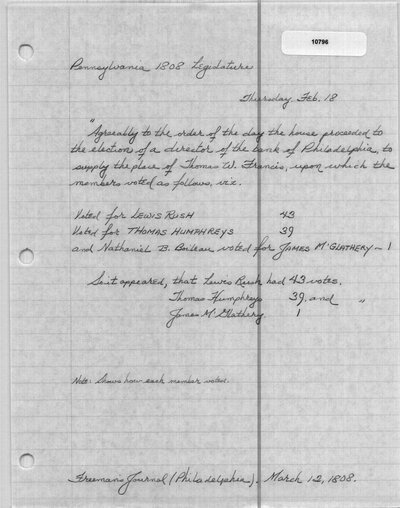 10796
Pennsylvania 1808 Legislature
Thursday Feb. 18
"Agreeably to the order of the day the house proceeded to
the election of a director of the bank of Philadelphia, to
supply the place of Thomas W. Francis, upon which the
members voted as follows, viz.
Voted for LEWIS RUSH 43
Voted for THOMAS HUMPHREYS 39
and Nathaniel B. Boileau voted for JAMES M'GLATHERY - 1
So it appeared, that Lewis Rush had 43 votes.
Thomas Humphreys 39, and "
James M'Glathery 1
Note: Shows how each member voted.
Freeman's Journal (Philadelphia). March 12, 1808.